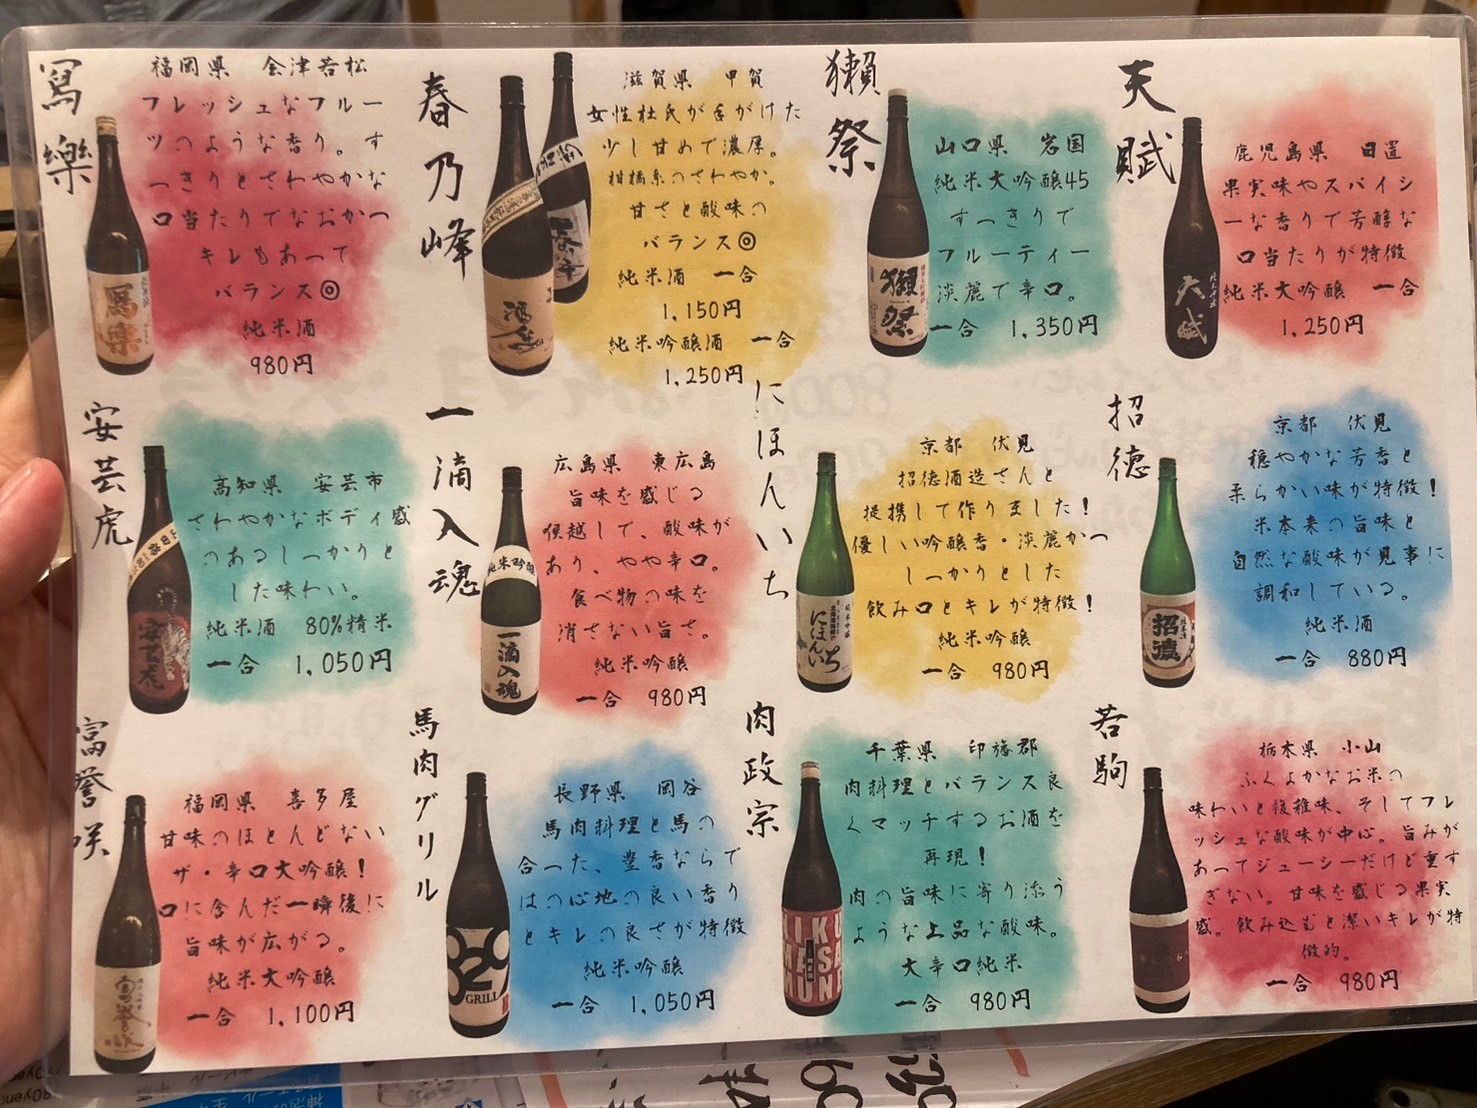 寫樂
福岡県 会津若松
フレッシュなフルー
ツのような香り。す
っきりとさわやかな
口当たりでなおかつ
キレもあって
バランス◎
純米酒
980円
春乃峰
滋賀県 甲賀
女性杜氏が手がけた
少し甘めで濃厚。
柑橘系のさわやか。
甘さと酸味の
バランス◎
純米酒 一合
1,150円
純米吟醸酒 一合
1,250円
獺祭
山口県 岩国
純米大吟醸45
すっきりで
フルーティー
淡麗で辛口。
一合 1,350円
天賦
鹿児島県 日置
果実味やスパイシ
ーな香りで芳醇な
口当たりが特徴
純米大吟醸 一合
1,250円
安芸虎
高知県 安芸市
さわやかなボディ感
のあるしっかりと
した味わい。
純米酒 80%精米
一合 1,050円
一滴入魂
広島県 東広島
旨味を感じる
優越して、酸味が
あり、やや辛口。
食べ物の味を
消さない旨さ。
純米吟醸
一合 980円
純米吟醸
一滴入魂
にほんいち
京都 伏見
招徳酒造さんと
提携して作りました!
優しい吟醸香・淡麗かつ
しっかりとした
飲み口とキレが特徴!
純米吟醸
一合 980円
にほんいち
招徳
京都 伏見
穏やかな芳香と
柔らかい味が特徴!
米本来の旨味と
自然な酸味が見事に
調和している。
純米酒
一合 880円
招徳
富誉咲
福岡県 喜多屋
甘味のほとんどない
ザ・辛口大吟醸!
口に含んだ一瞬後に
旨味が広がる。
純米大吟醸
一合 1,100円
馬肉グリル
長野県 岡谷
馬肉料理と馬の
合った、豊香ならで
はの心地の良い香り
とキレの良さが特徴
純米吟醸
一合 1,050円
029
GRILL
肉政宗
千葉県 印旛郡
肉料理とバランス良
くマッチするお酒を
再現!
肉の旨味に寄り添う
ような上品な酸味。
大辛口純米
一合 980円
若駒
栃木県 小山
ふくよかなお米の
味わいと複雑味、そしてフレ
ッシュな酸味が中心。旨みが
あってジューシーだけど重す
ぎない。甘味を感じる果実
感。飲み込むと潔いキレが特
徴的。
一合 980円